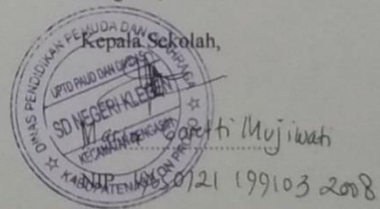 Kepala Sekolah,
DINAS PENDIDIKAN PEMUDA DAN OLAHRAGA
UPTD PAUD DAN DIKDAS
SD NEGERI KLEGEN
KECAMATAN PENGASIH
KABUPATEN KULON PROGO
Mujiwati
NIP. 0121 199103 2008